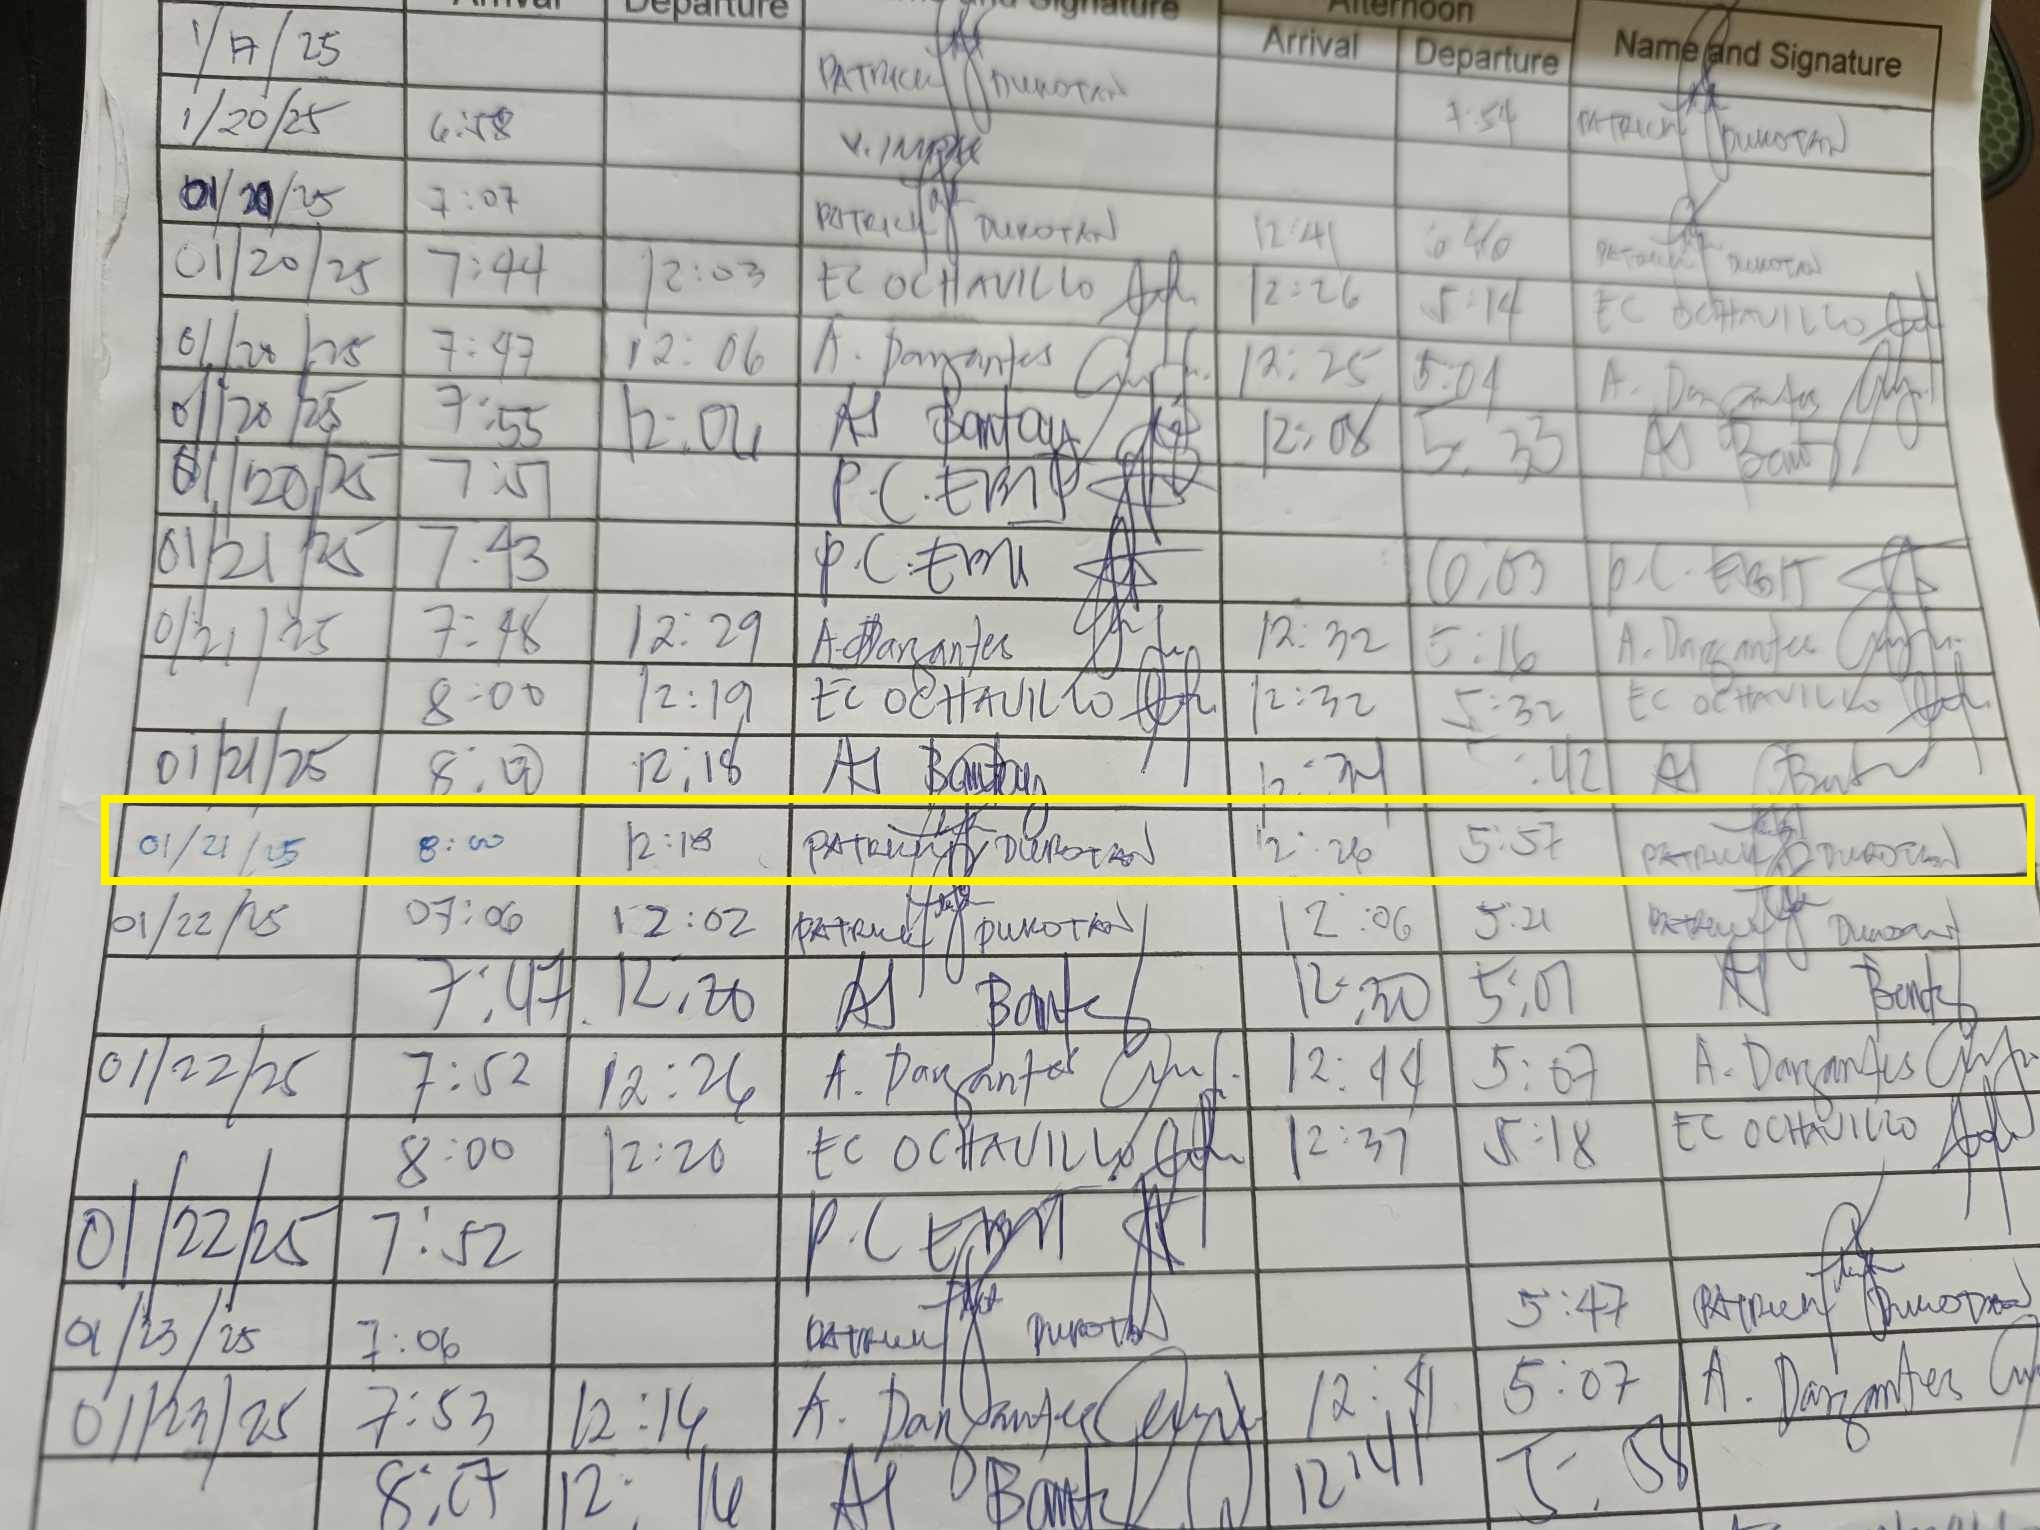 Arrival Departure Name and Signature Afternoon
Arrival Departure Name and Signature
1/17/25 PATRICK DUROTAN 7:54 PATRICK DUROTAN
1/20/25 6:58
01/20/25 7:07 PATRICK DUROTAN 12:41 PATRICK DUROTAN
01/20/25 7:44 12:03 EC OCHAVILLO 12:26 5:14 EC OCHAVILLO
01/20/25 7:47 12:06 A. Dangantes 12:25 5:04 A. Dangantes
01/20/25 7:55 12:04 AJ Bantay 12:08 5:33 AJ
01/20/25 7:51 P.C. EBIT
01/21/25 7:43 P.C. EBIT 6:03 P.C. EBIT
01/21/25 7:48 12:29 A. Dangantes 12:32 5:16 A. Dangantes
8:00 12:19 EC OCHAVILLO 12:32 5:32 EC OCHAVILLO
01/21/25 12:18 AJ Bantay :42 AJ
01/21/25 8:00 12:18 PATRICK DUROTAN 12:26 5:57 PATRICK DUROTAN
01/22/25 07:06 12:02 PATRICK DUROTAN 12:06 5:21 PATRICK DUROTAN
7:47 12:20 AJ 12:30 5:01 AJ
01/22/25 7:52 12:26 A. Dangantes 12:44 5:07 A. Dangantes
8:00 12:20 EC OCHAVILLO 12:37 5:18 EC OCHAVILLO
01/22/25 7:52 P.C EBIT
01/23/25 7:06 PATRICK DUROTAN 5:47 PATRICK DUROTAN
01/23/25 7:53 12:14 A. Dangantes 12:41 5:07 A. Dangantes
8:07 12:14 AJ 12:41 5:58